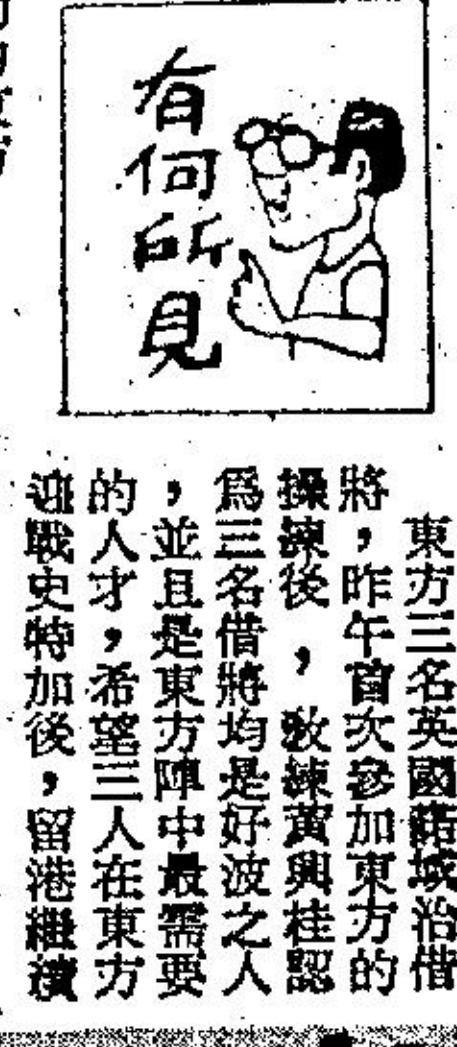 有何所見
東方三名英國諾域治借
將，昨午首次參加東方的
操練後，敎練黃興桂認
爲三名借將均是好波之人
，並且是東方陣中最需要
的人才，希望三人在東方
迎戰史特加後，留港繼續